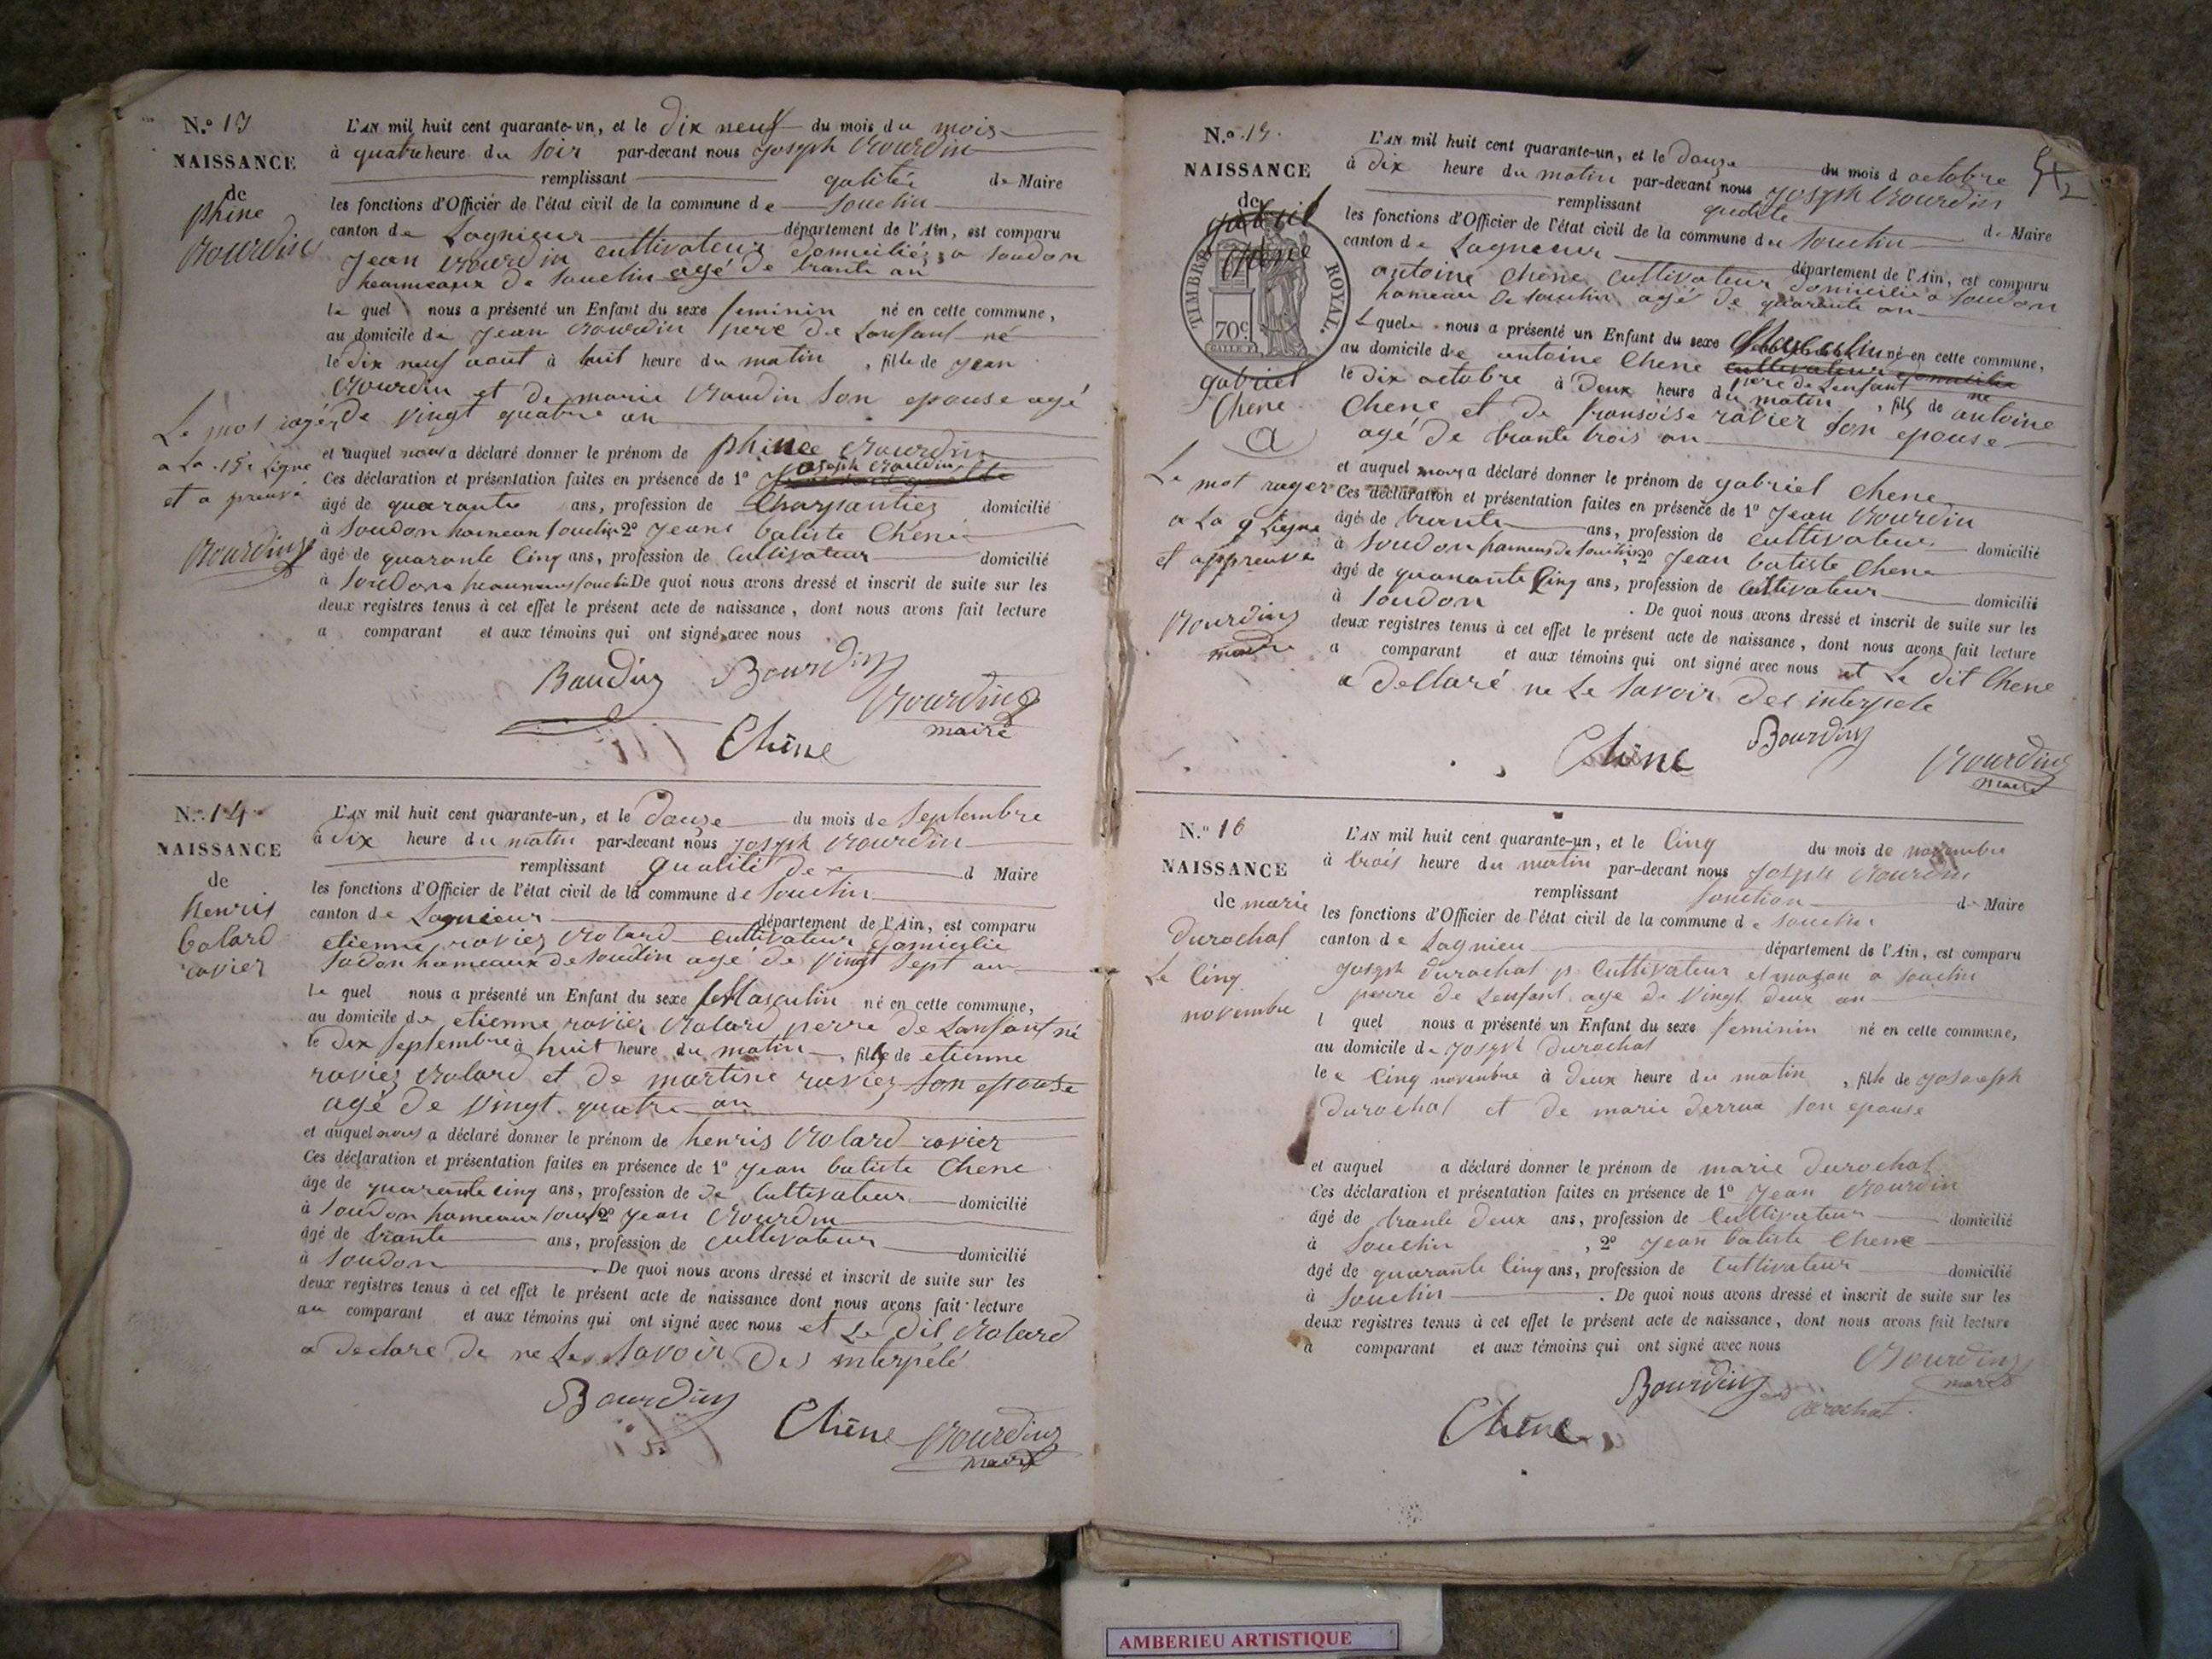 N.o 13
NAISSANCE
de
phine
Bourdin
L'AN mil huit cent quarante-un, et le dix neuf du mois du mois
à quatre heure du soir par-devant nous Joseph Bourdin
remplissant qalitée de Maire
les fonctions d'Officier de l'état civil de la commune de Souclin
canton de Lagnieur département de l'Ain, est comparu
Jean Bourdin cultivateur domiciliéz a Soudon
heaumeaux de Souclin agé de trante an
le quel nous a présenté un Enfant du sexe feminin né en cette commune,
au domicile de Jean Bourdin pere de Lonfant né
le dix neuf aout à huit heure du matin , fille de Jean
Bourdin et de marie Baudin son epouse agé
de vingt quatre an
et auquel nous a déclaré donner le prénom de phinee Bourdin
Ces déclaration et présentation faites en présence de 1o Joseph Baudin
âgé de quarante ans, profession de Charpantier domicilié
à Soudon hameau Souclin 2o Jeans batiste Chêne
âgé de quarante Cinq ans, profession de Cultivateur domicilié
à Soudon heaumeau Souclin De quoi nous avons dressé et inscrit de suite sur les
deux registres tenus à cet effet le présent acte de naissance, dont nous avons fait lecture
a comparant et aux témoins qui ont signé avec nous
Le mot rayér
a La 15e Ligne
et a preuvé
Bourding
Baudin Bourdin
Bourding
maire
Chêne
N.o 14
NAISSANCE
de
henris
bolard
ravier
L'AN mil huit cent quarante-un, et le douze du mois de Septembre
à dix heure du matin par-devant nous Joseph Bourdin
remplissant qualité de d Maire
les fonctions d'Officier de l'état civil de la commune de Souclin
canton de Lagnieur département de l'Ain, est comparu
etienne ravier Bolard cultivateur domicilie
Sodon hameaux de Souclin agé de vingt Sept an
le quel nous a présenté un Enfant du sexe Masculin né en cette commune,
au domicile de etienne ravier Bolard perre de Lanfant né
le dix Septembre à huit heure du matin , fille de etienne
ravier Bolard et de martine ravier son epouse
agé de vingt quatre an
et auquel nous a déclaré donner le prénom de henris Bolard ravier
Ces déclaration et présentation faites en présence de 1o Jean batiste Chene
âge de quarante cinq ans, profession de de Cultivateur domicilié
à Soudon hameaux Souclin 2o Jean Bourdin
âgé de trante ans, profession de Cultivateur domicilié
à Soudon . De quoi nous avons dressé et inscrit de suite sur les
deux registres tenus à cet effet le présent acte de naissance dont nous avons fait lecture
au comparant et aux témoins qui ont signé avec nous et Le dit Bolard
a declare de ne Le Savoir des interpélé
Bourdin
Chêne Bourding
maire
N.o 15
NAISSANCE
de
gabriel
chene
TIMBRE ROYAL.
70c
gabriel
Chene
a
L'AN mil huit cent quarante-un, et le douze du mois d octobre
à dix heure du matin par-devant nous Joseph Bourdin
remplissant qualité de Maire
les fonctions d'Officier de l'état civil de la commune du Souclin
canton de Lagneeur département de l'Ain, est comparu
antoine Chene Cultivateur domicilie a Soudon
hameau de Souclin agé de quarante an
Lquele nous a présenté un Enfant du sexe Masculin né en cette commune,
au domicile de antoine Chene cultivateur domicilie
pere de Lenfant né
le dix octobre à deux heure du matin , fils de antoine
Chene et de fransoise ravier Son epouse
agé de trante trois an
et auquel nous a déclaré donner le prénom de gabriel Chene
Ces déclaration et présentation faites en présence de 1o Jean Bourdin
âgé de trante ans, profession de Cultivateur domicilié
à Soudon hameau de Souclin, 2o Jean batiste Chene
âgé de quarante Cinq ans, profession de Cultivateur domicilié
à Soudon . De quoi nous avons dressé et inscrit de suite sur les
deux registres tenus à cet effet le présent acte de naissance, dont nous avons fait lecture
a comparant et aux témoins qui ont signé avec nous et Le dit Chene
a dellaré ne Le Savoir des interpele
Le mot rayer
a La 9 Ligne
et appreuvé
Bourding
maire
Chêne
Bourdin
Bourding
maire
N.o 16
NAISSANCE
de marie
durochat
Le Cinq
novembre
L'AN mil huit cent quarante-un, et le Cinq du mois de novembre
à trois heure du matin par-devant nous Joseph Bourdin
remplissant fonction de Maire
les fonctions d'Officier de l'état civil de la commune de Souclin
canton de Lagnieu département de l'Ain, est comparu
Joseph durochat p Cultivateur et maçon a Souclin
perre de Lenfant age de Vingt deux an
l quel nous a présenté un Enfant du sexe feminin né en cette commune,
au domicile de Joseph durochat
le e Cinq novembre à deux heure du matin , fille de Josaeph
durochat et de marie derrua son epouse
et auquel a déclaré donner le prénom de marie durochat
Ces déclaration et présentation faites en présence de 1o Jean Bourdin
âgé de trante deux ans, profession de Cultivateur domicilié
à Souclin , 2o Jean batiste Chene
âgé de quarante Cinq ans, profession de Cultivateur domicilié
à Souclin . De quoi nous avons dressé et inscrit de suite sur les
deux registres tenus à cet effet le présent acte de naissance, dont nous avons fait lecture
à comparant et aux témoins qui ont signé avec nous
Bourding
maire
Bourdin
durochat
Chêne
AMBERIEU ARTISTIQUE